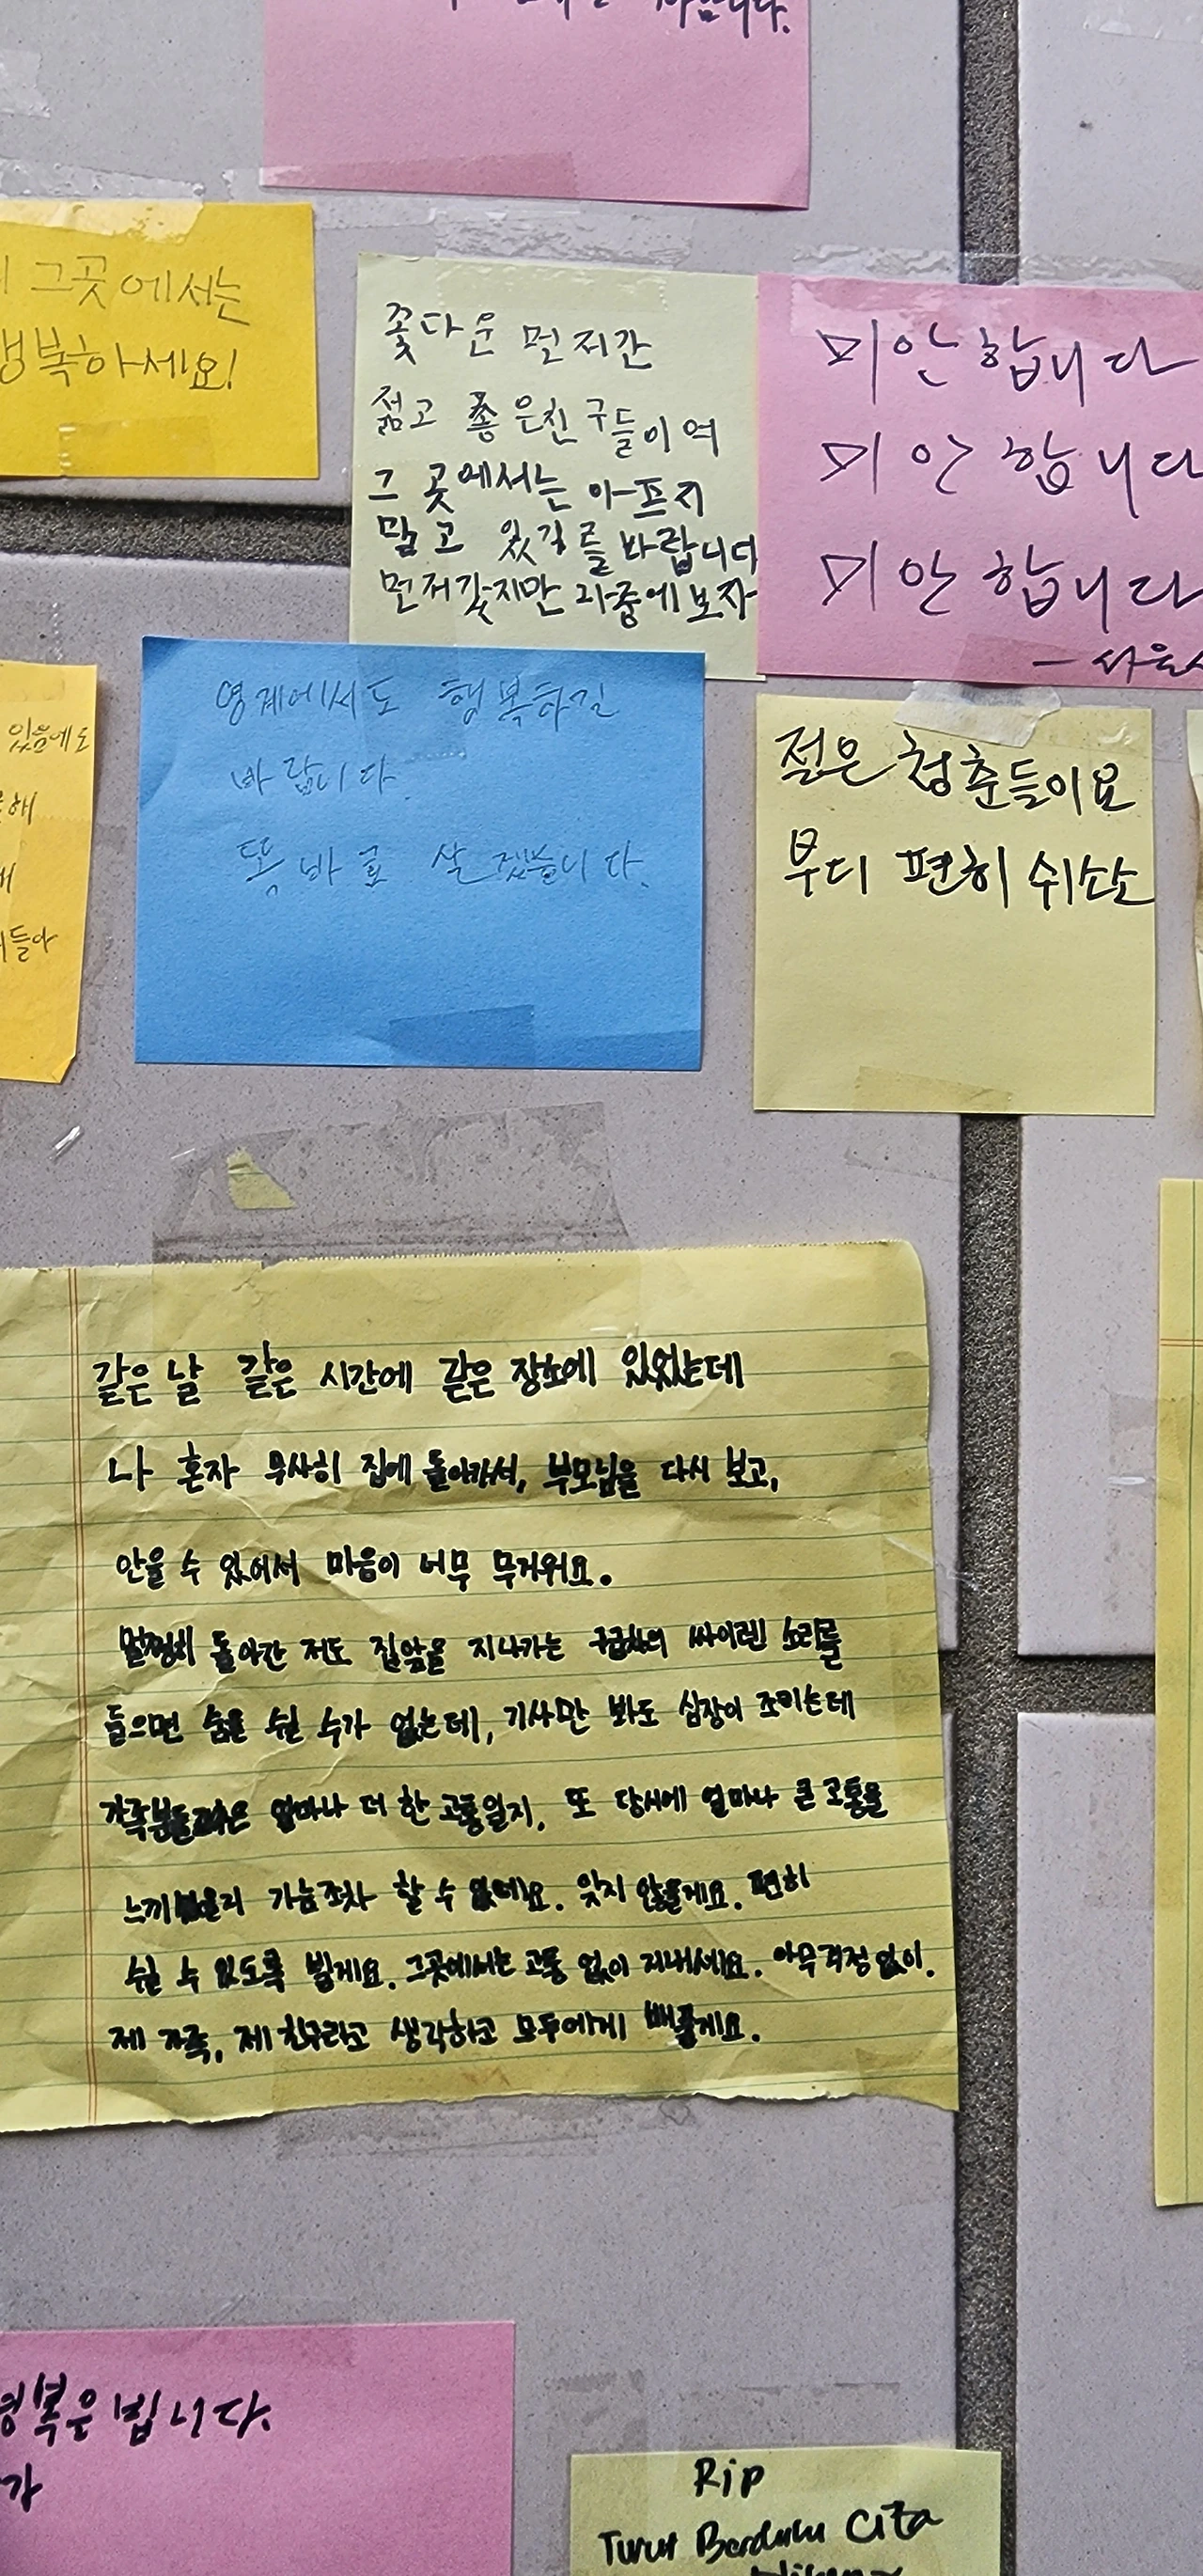 그곳에서는
행복하세요!
꽃다운 먼저간
젊고 좋은친구들이여
그 곳에서는 아프지
말고 있길를 바랍니다
먼저갔지만 나중에보자
미안합니다
미안합니다
미안합니다
영계에서도 행복하길
바랍니다.
똑바로 살겠습니다.
있음에도
젊은 청춘들이요
부디 편히 쉬소소
같은 날 같은 시간에 같은 장소에 있었는데
나 혼자 무사히 집에 돌아가서, 부모님을 다시 보고,
안을 수 있어서 마음이 너무 무거워요.
멀쩡히 돌아간 저도 집앞을 지나가는 구급차의 싸이렌 소리를
들으면 숨을 쉴 수가 없는데, 기사만 봐도 심장이 조리는데
가족분들은 얼마나 더 한 고통일지, 또 당시에 얼마나 큰 고통을
느끼셨을지 가늠조차 할 수 없네요. 잊지 않을게요. 편히
쉴 수 있도록 빌게요. 그곳에서는 고통 없이 지내세요. 아무걱정없이.
제 가족, 제 친구라고 생각하고 모두에게 베풀게요.
명복은 빕니다.
Rip
Turut Berduka Cita